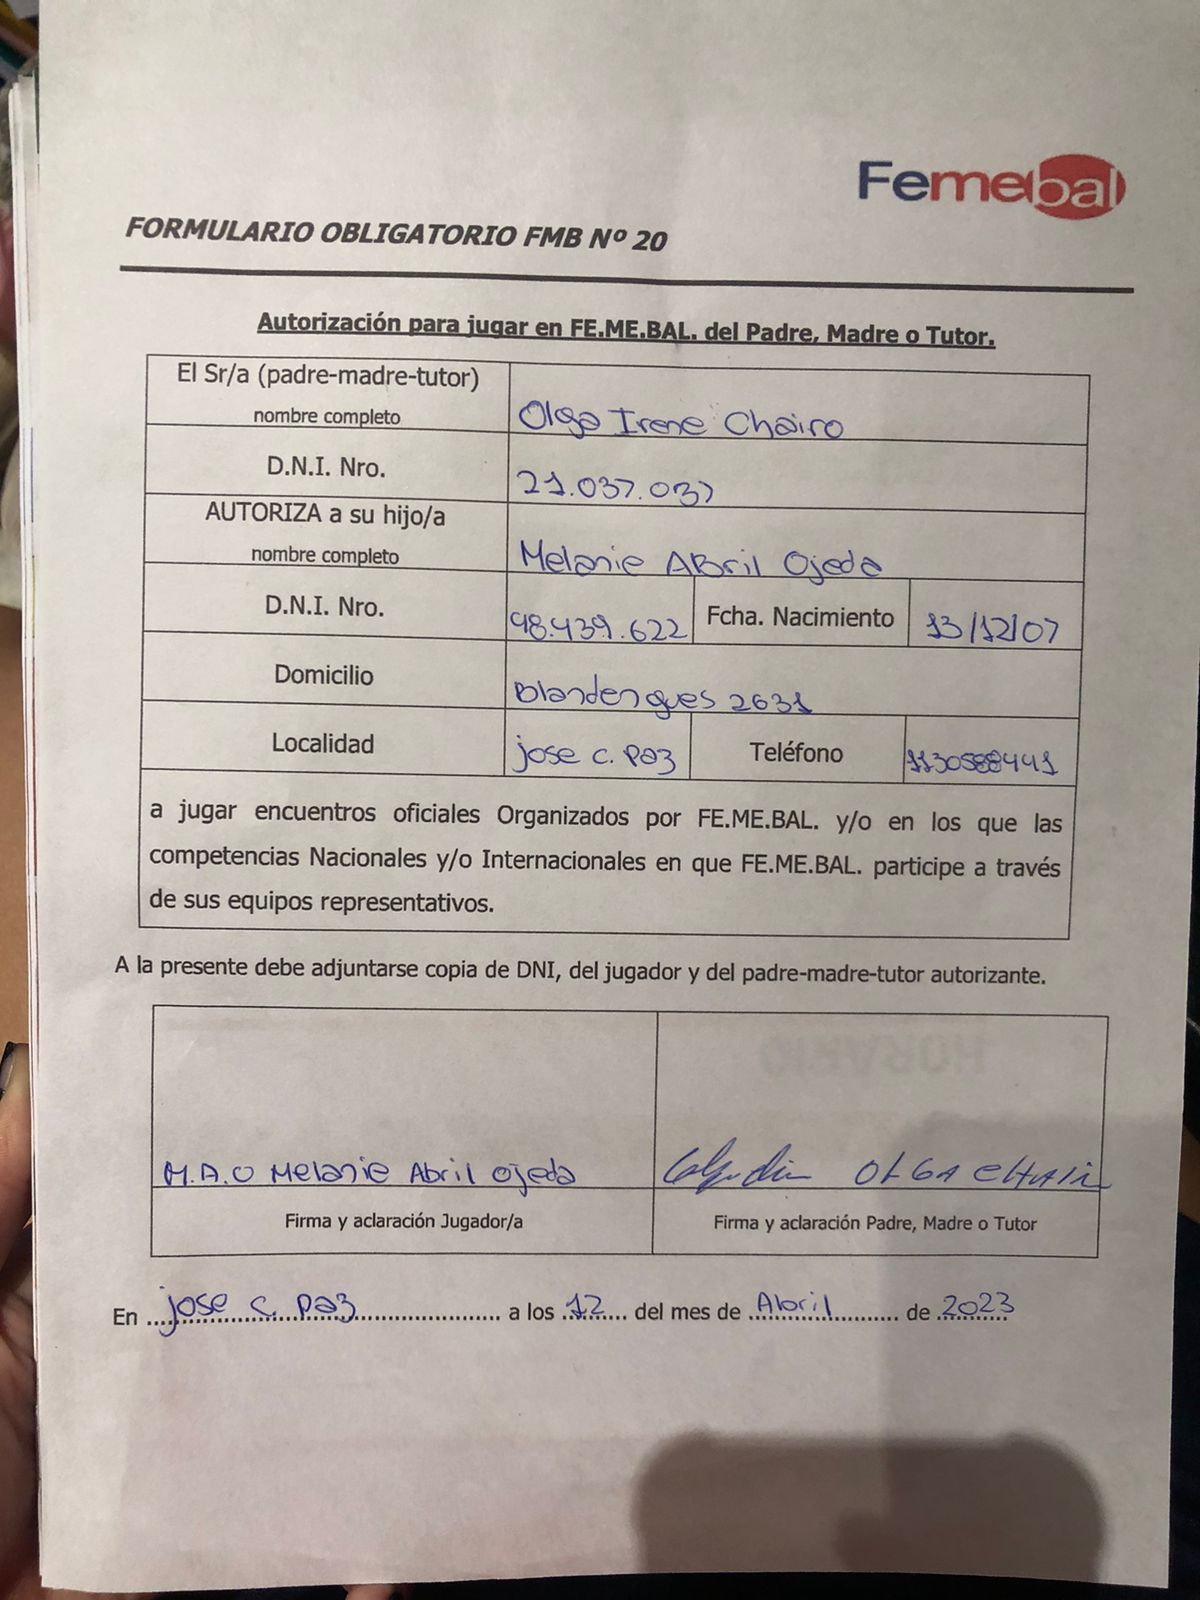 Femebal
FORMULARIO OBLIGATORIO FMB Nº 20
Autorización para jugar en FE.ME.BAL. del Padre, Madre o Tutor.
El Sr/a (padre-madre-tutor)
nombre completo
Olga Irene Chairo
D.N.I. Nro.
21.037.037
AUTORIZA a su hijo/a
nombre completo
Melanie ABril Ojeda
D.N.I. Nro.
48.439.622
Fcha. Nacimiento
13/12/07
Domicilio
Blandengues 2631
Localidad
jose c. paz
Teléfono
1130588441
a jugar encuentros oficiales Organizados por FE.ME.BAL. y/o en los que las
competencias Nacionales y/o Internacionales en que FE.ME.BAL. participe a través
de sus equipos representativos.
A la presente debe adjuntarse copia de DNI, del jugador y del padre-madre-tutor autorizante.
HORARIO
M.A.O Melanie Abril Ojeda
OLGA
Firma y aclaración Jugador/a
Firma y aclaración Padre, Madre o Tutor
En jose c. paz a los 12 del mes de Abril de 2023